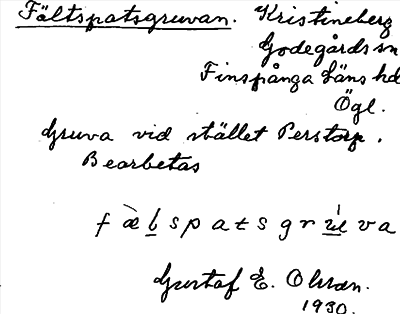 Fältspatsgruvan. Kristineberg
Godegårds sn
Finspånga läns hd
Ögl.
Gruva vid stället Perstorp.
Bearbetas
fæ̀lspatsgrúva
Gustaf E. Olsson.
1930.